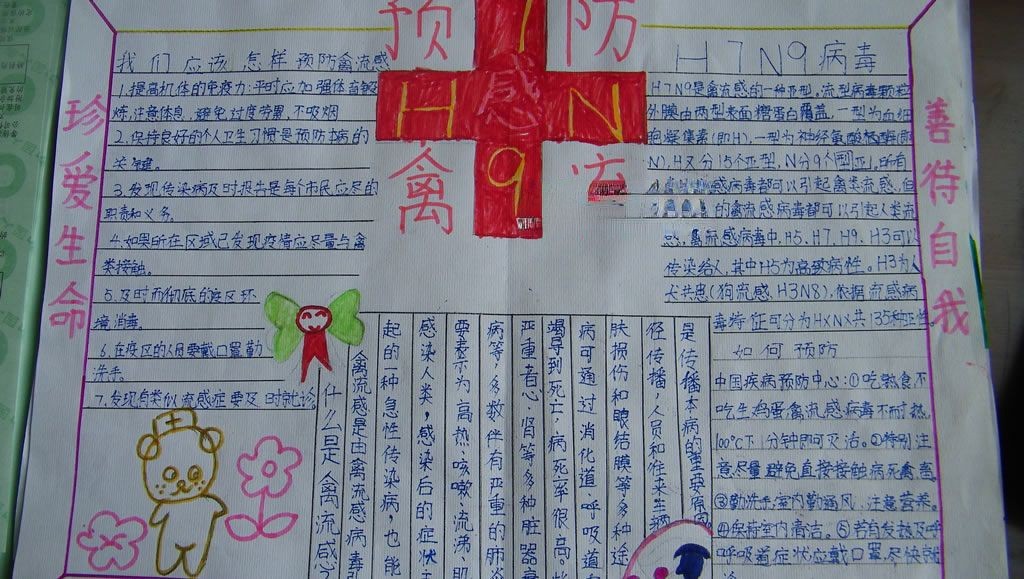 预防
禽
H7N9
感
珍爱生命
善待自我
我们应该怎样预防禽流感
1.提高机体的免疫力:平时应加强体育锻
炼,注意休息,避免过度劳累,不吸烟
2.保持良好的个人卫生习惯是预防本病的
关键。
3.发现传染病及时报告是每个市民应尽的
职责和义务。
4.如果所在区域已发现疫情应尽量与禽
类接触。
5.及时而彻底的疫区环
境消毒。
6.在疫区的人员要戴口罩勤
洗手。
7.发现自类似流感症要及时就诊。
H7N9病毒
H7N9是禽流感的一种亚型,流型病毒颗粒
外膜由两型表面糖蛋白覆盖,一型为血细
胞凝集素(即H),一型为神经氨酸酶(即
N),H又分15个亚型,N分9个型亚。所有
感病毒都可以引起禽类流感,但
的禽流感病毒都可以引起人类流
感,禽流感病毒中,H5、H7、H9、H3可以
传染给人,其中H5为高致病性。H3为人
犬共患(狗流感,H3N8),依据流感病
毒特征可分为HXNX共135种亚型。
如何预防
中国疾病预防中心:①吃熟食不
吃生鸡蛋禽流感病毒不耐热
100℃下1分钟即可灭活。②特别注
意尽量避免直接接触病死禽畜
③勤洗手,室内勤通风,注意营养。
④保持室内清洁。⑤若有发热及呼
呼吸道症状应戴口罩,尽快就
是传播本病的主要原因
径传播,人员和往来车辆
肤损伤和眼结膜等多种途
病可通过消化道、呼吸道
竭导到死亡,病死率很高。
严重者心、肾等多种脏器衰
病等,多数伴有严重的肺炎
要表示为高热、咳嗽、流涕、肌
感染人类,感染后的症状
起的一种急性传染病,也能
禽流感是由禽流感病毒引
什么是禽流感?